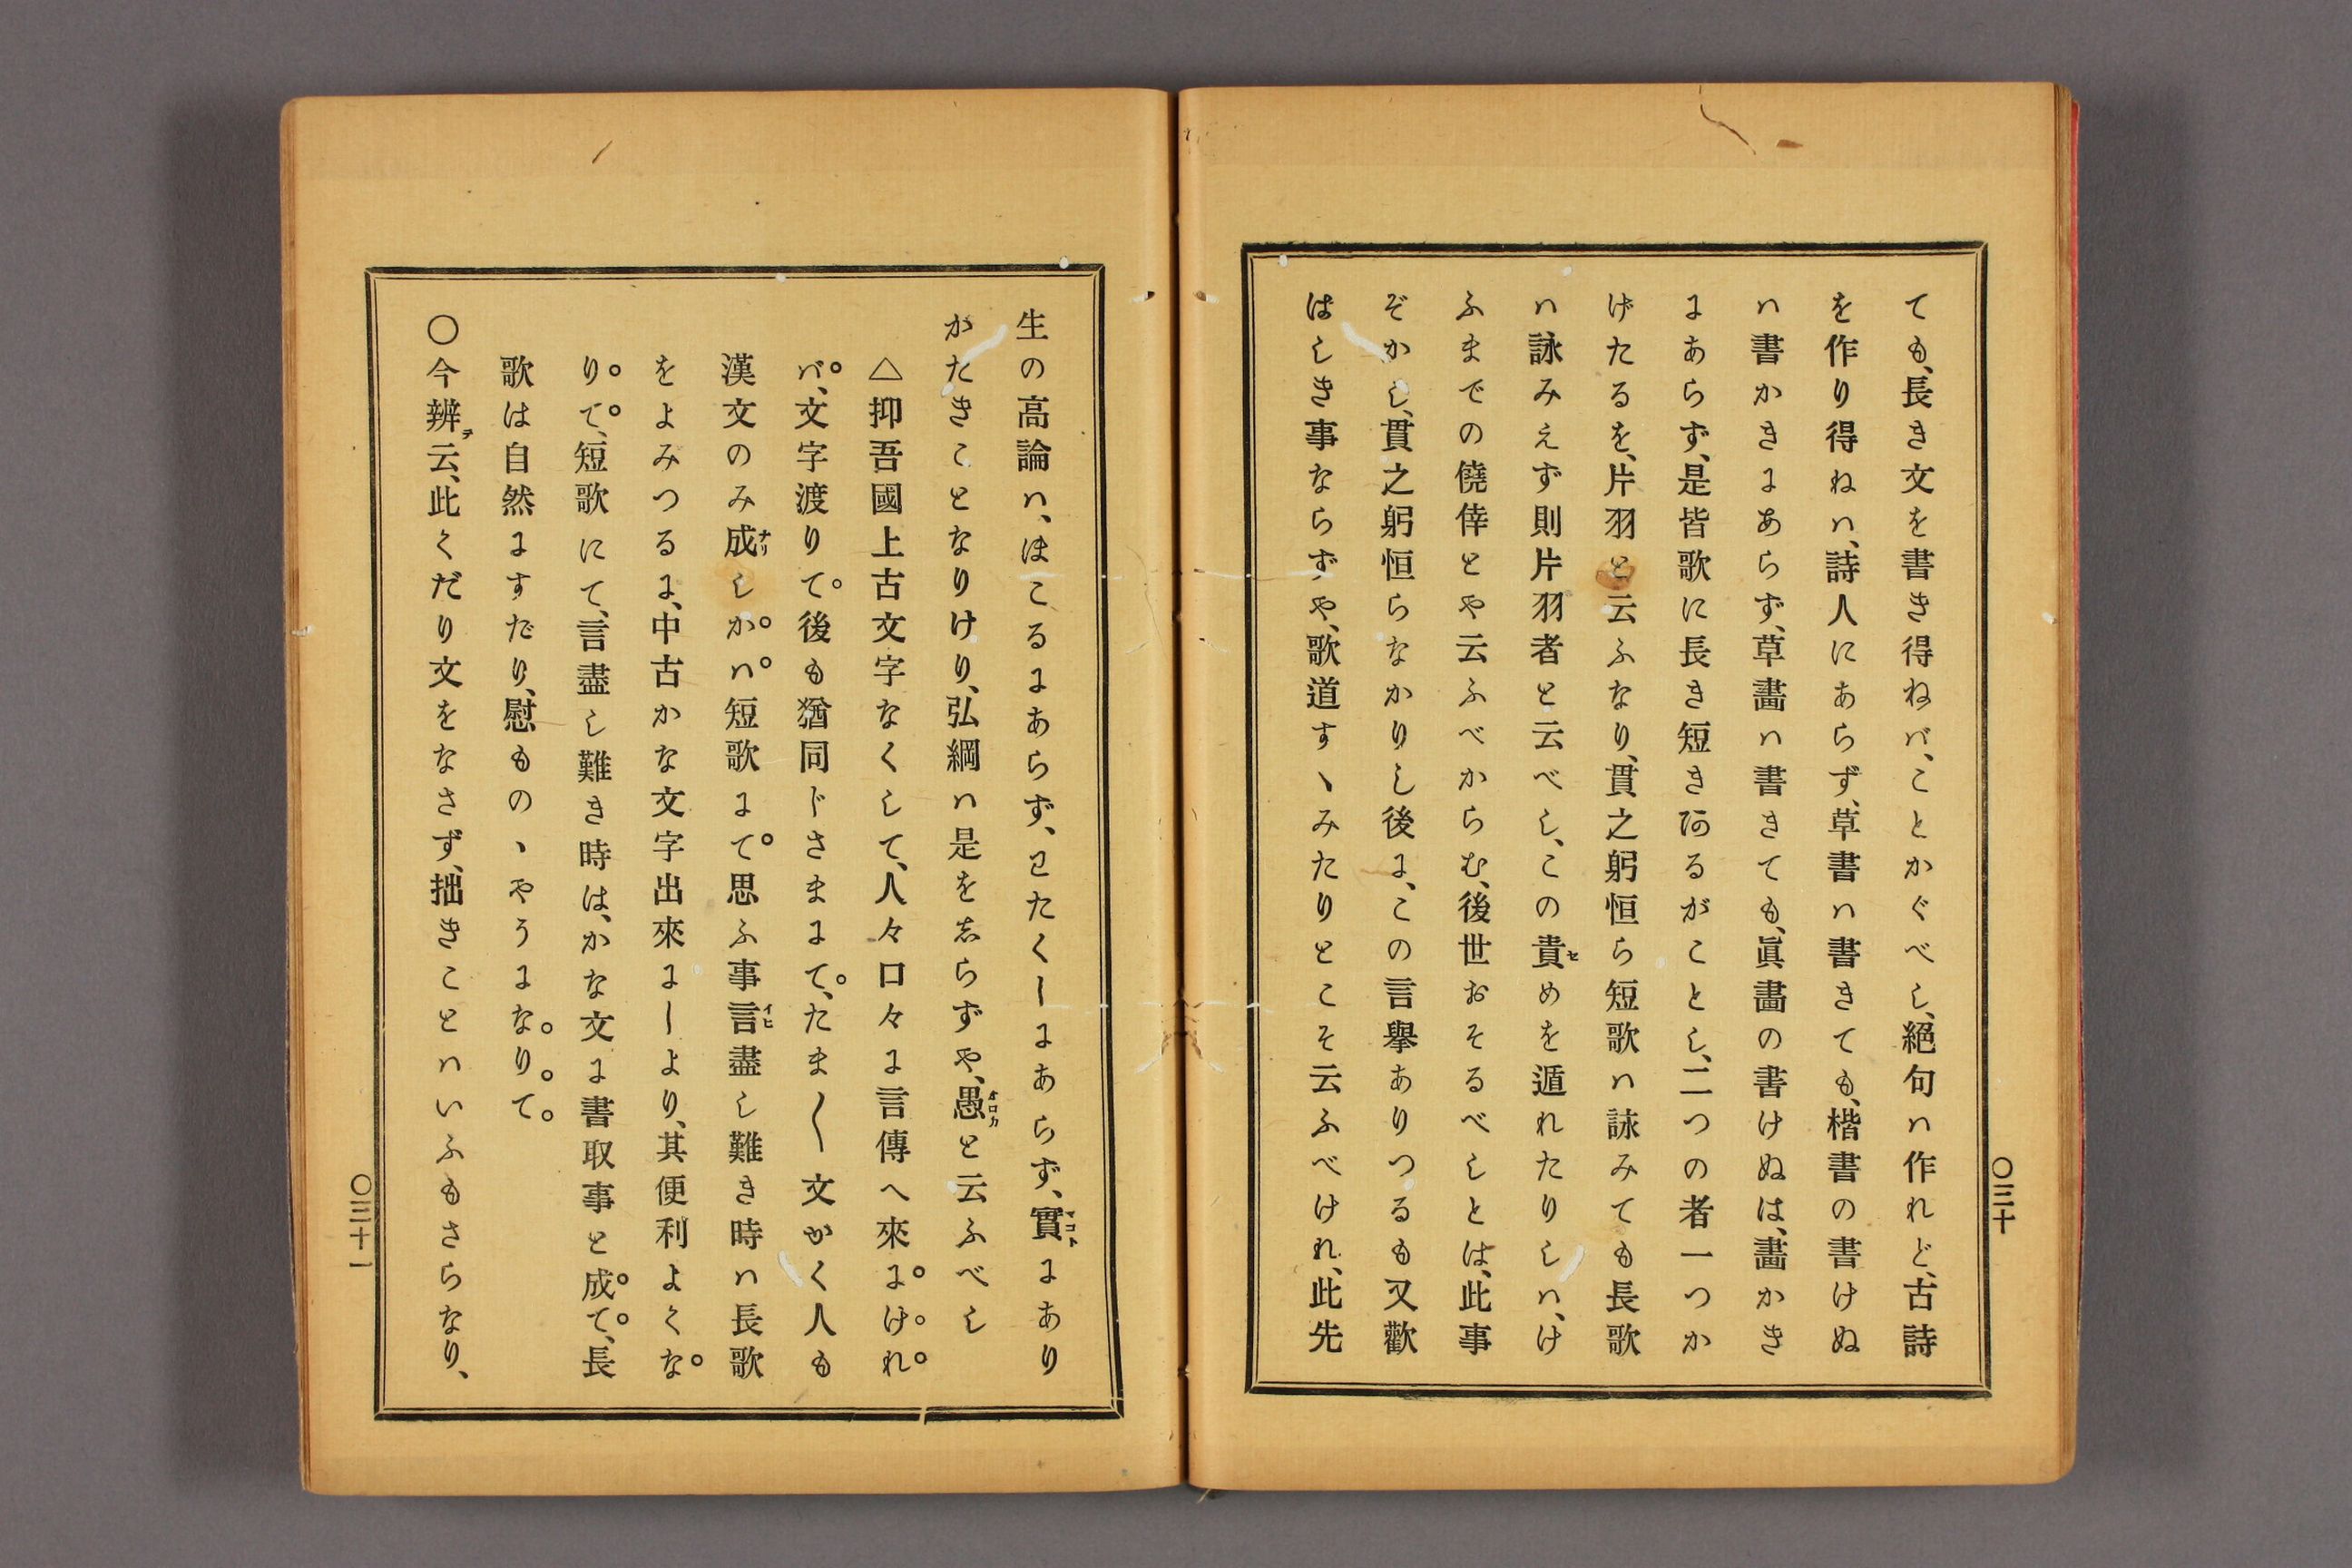 ても、長き文を書き得ねバ、ことかくべし、絕句ハ作れど、古詩
を作り得ねハ、詩人にあらず、草書ハ書きても、楷書の書けぬ
ハ書かきにあらず、草畵ハ書きても、眞畵の書けぬは、畵かき
にあらず、是皆歌に長き短き阿るがことし、二つの者一つか
げたるを、片羽と云ふなり、貫之躬恒ら短歌ハ詠みても長歌
ハ詠みえず則片羽者と云べし、この責めを遁れたりしハ、け
ふまでの僥倖とや云ふべからむ、後世おそるべしとは、此事
ぞかし、貫之躬恒らなかりし後に、この言擧ありつるも又歡
はしき事ならずや、歌道すヽみたりとこそ云ふべけれ、此先
〇三十
生の高論ハ、ほこるにあらず、わたくしにあらず、實にあり
がたきことなりけり、弘綱ハ是を志らずや、愚と云ふべし
△抑吾國上古文字なくして、人々口々に言傳へ來にけれ
バ、文字渡りて後も猶同じさまにて、たま〱文かく人も
漢文のみ成しかハ短歌にて思ふ事言盡し難き時ハ長歌
をよみつるに、中古かな文字出來にしより、其便利よくな
りて、短歌にて、言盡し難き時は、かな文に書取事と成て、長
歌は自然にすたり、慰ものヽやうになりて
〇今辨云、此くだり文をなさず、拙きことハいふもさらなり、
〇三十一